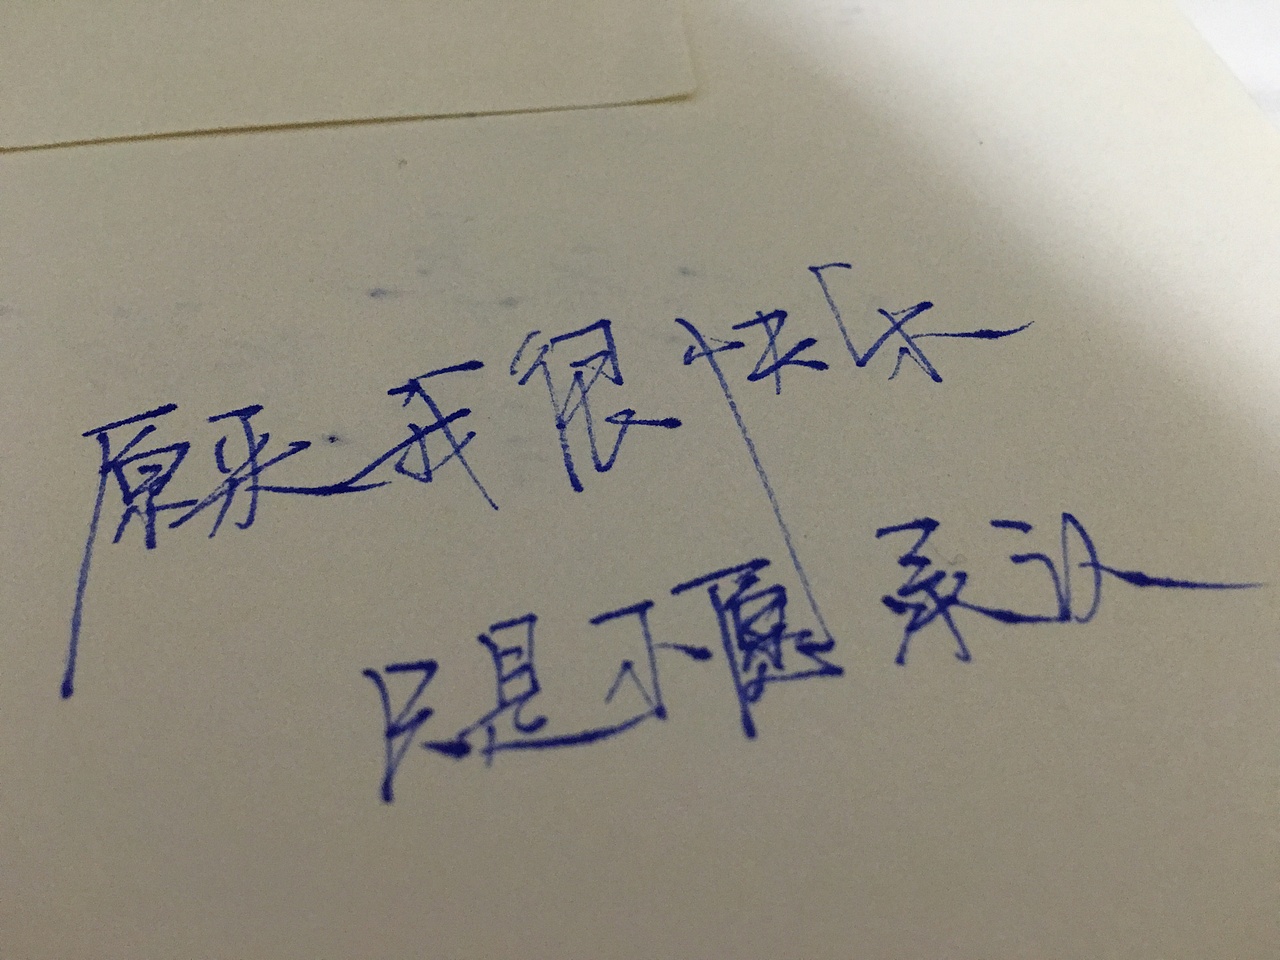 原来我很快乐
只是不愿承认